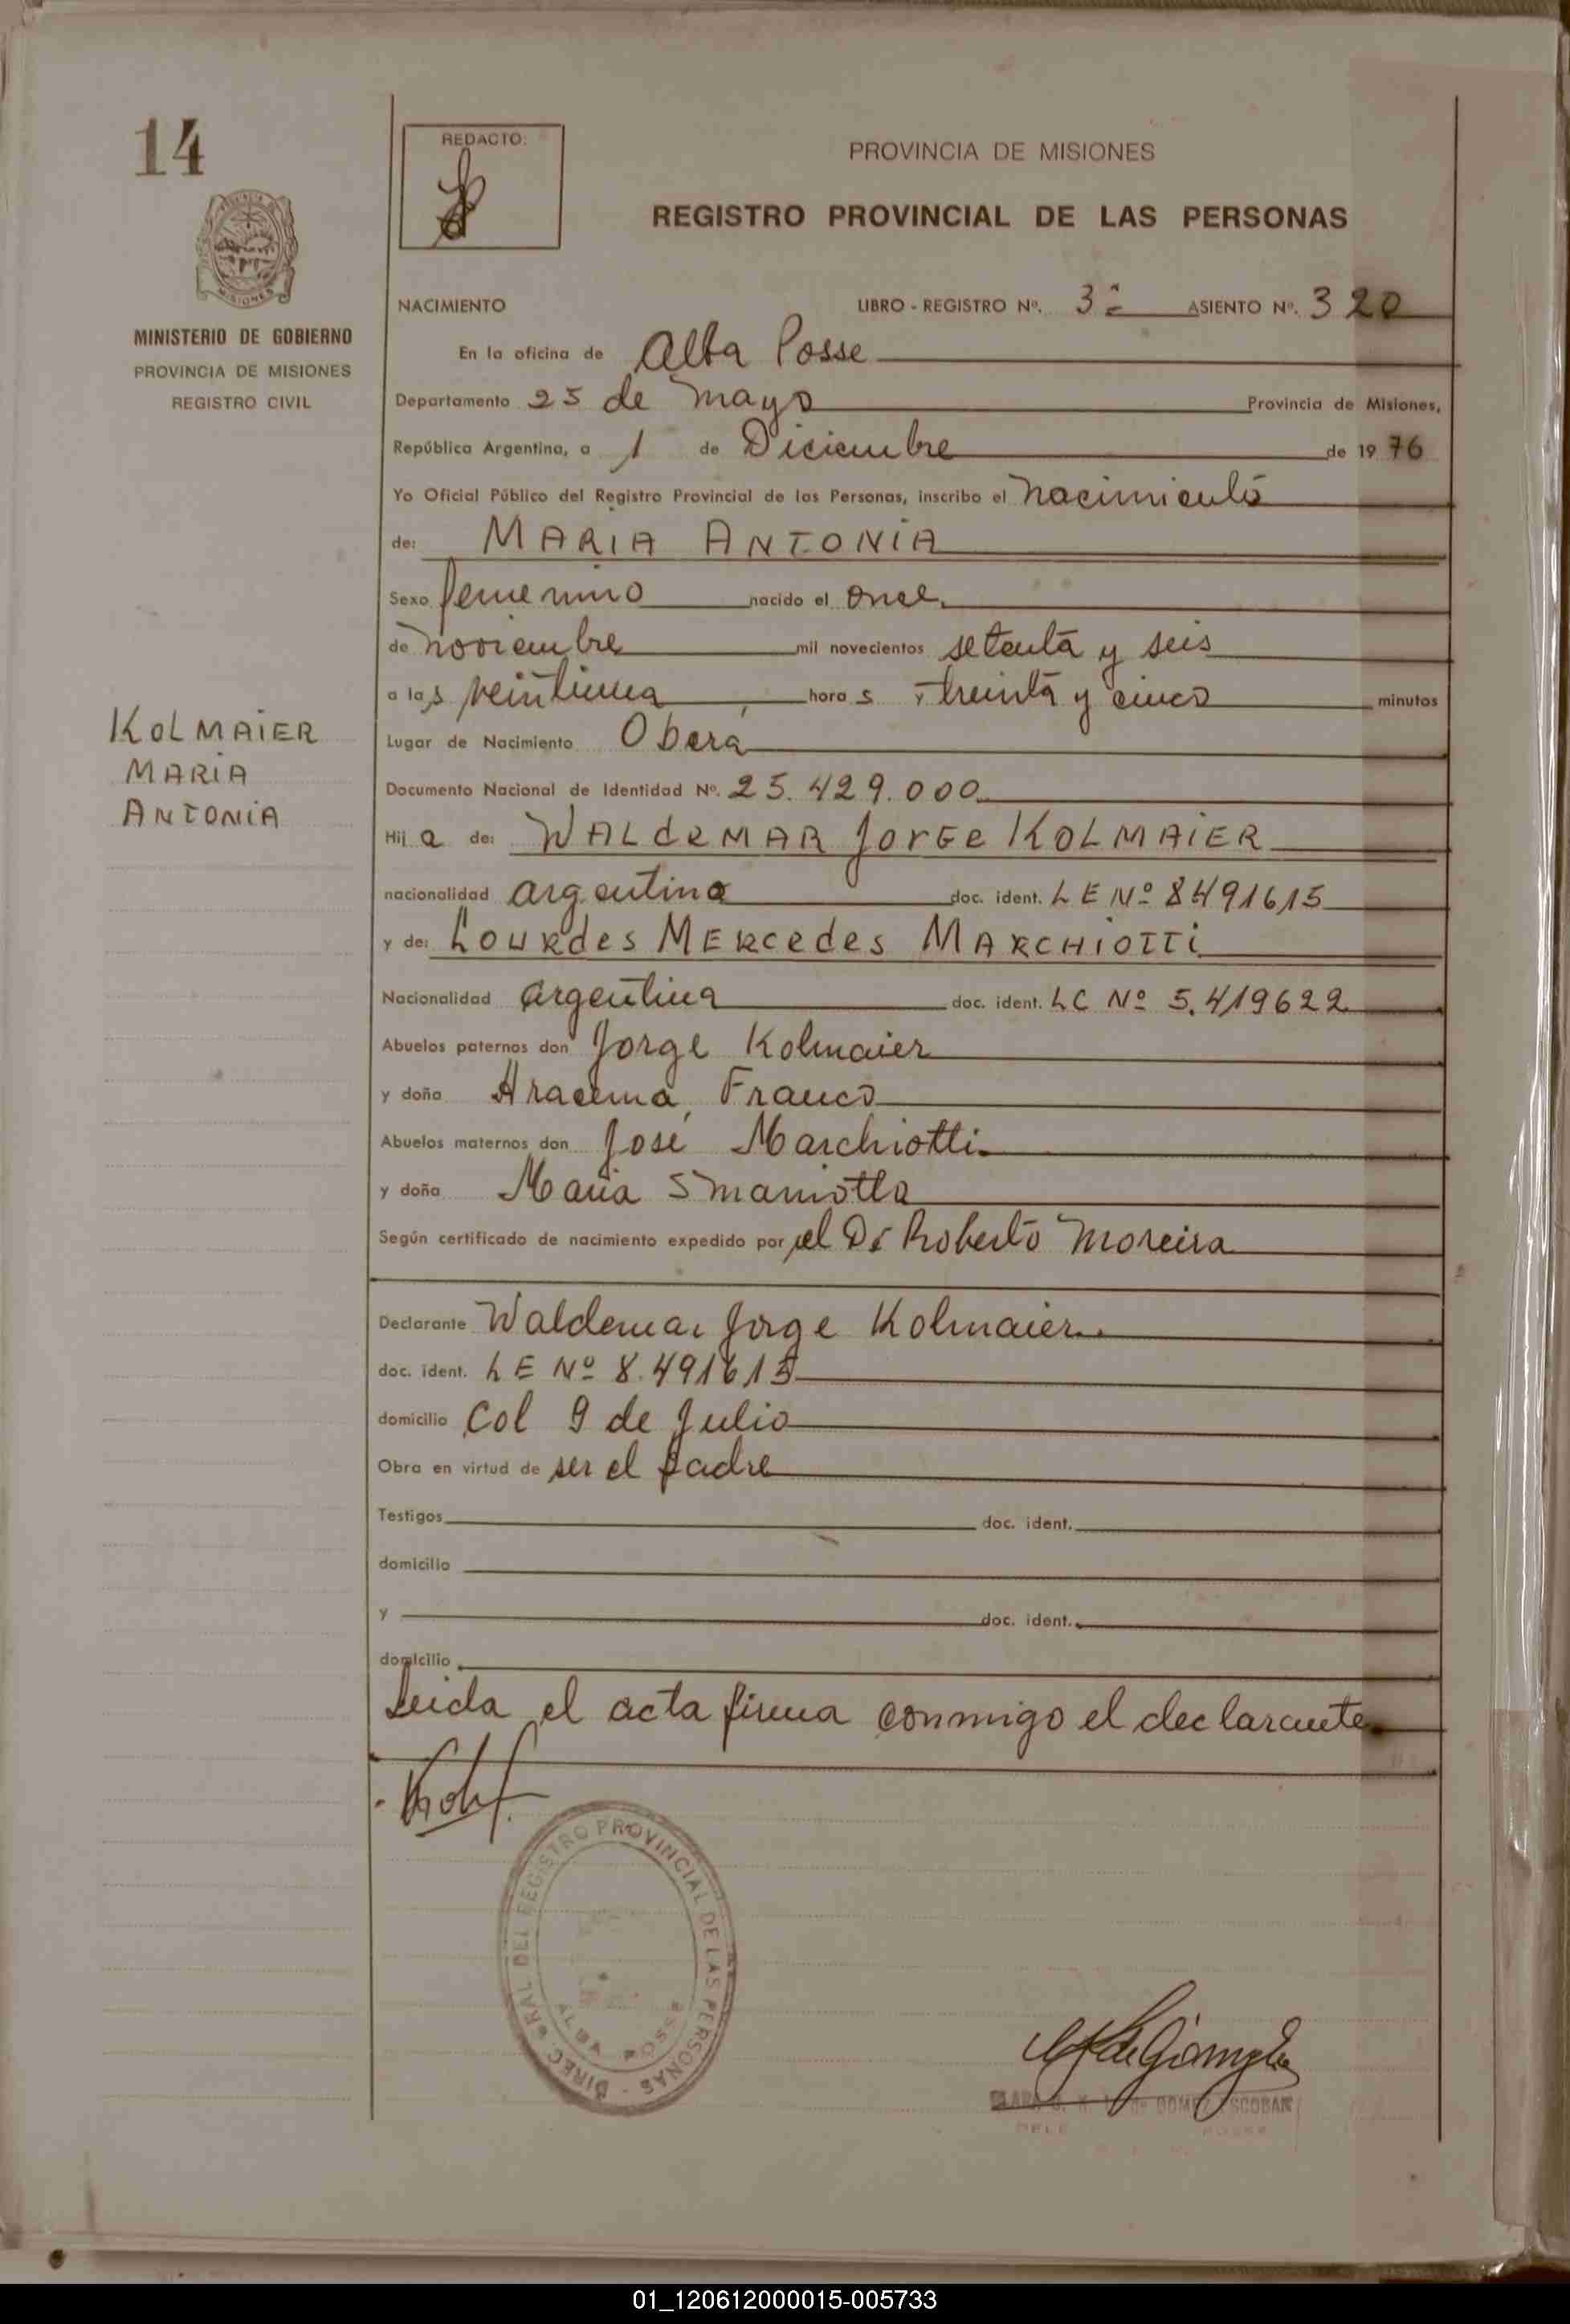 14
REDACTO:
PROVINCIA DE MISIONES
REGISTRO PROVINCIAL DE LAS PERSONAS
MISIONES
MINISTERIO DE GOBIERNO
PROVINCIA DE MISIONES
REGISTRO CIVIL
NACIMIENTO LIBRO - REGISTRO Nº. 3º ASIENTO Nº. 320
En la oficina de Alba Posse
Departamento 25 de Mayo Provincia de Misiones,
República Argentina, a 1 de Diciembre de 1976
Yo Oficial Público del Registro Provincial de las Personas, inscribo el nacimiento
de: MARIA ANTONIA
Sexo femenino nacido el once
de noviembre mil novecientos setenta y seis
a las veintiuna horas y treinta y cinco minutos
KOLMAIER
MARIA
ANTONIA
Lugar de Nacimiento Oberá
Documento Nacional de Identidad Nº. 25.429.000
Hija de: WALdeMAR JORGE KOLMAIER
nacionalidad argentina doc. ident. LE Nº 8491615
y de: LOURdes MERcedes MARCHIOTTI
Nacionalidad argentina doc. ident. LC Nº 5.419622
Abuelos paternos don Jorge Kolmaier
y doña Aracema Franco
Abuelos maternos don José Marchiotti
y doña Maria Smaniotto
Según certificado de nacimiento expedido por el Dr Roberto Moreira
Declarante Waldemar Jorge Kolmaier
doc. ident. LE Nº 8.491615
domicilio Col 9 de Julio
Obra en virtud de ser el padre
Testigos doc. ident.
domicilio
y doc. ident.
domicilio
Leida el acta firma conmigo el declarante
DIREC. GRAL DEL REGISTRO PROVINCIAL DE LAS PERSONAS -
ALBA POSSE
GOMEZ ESCOBAR
01_120612000015-005733